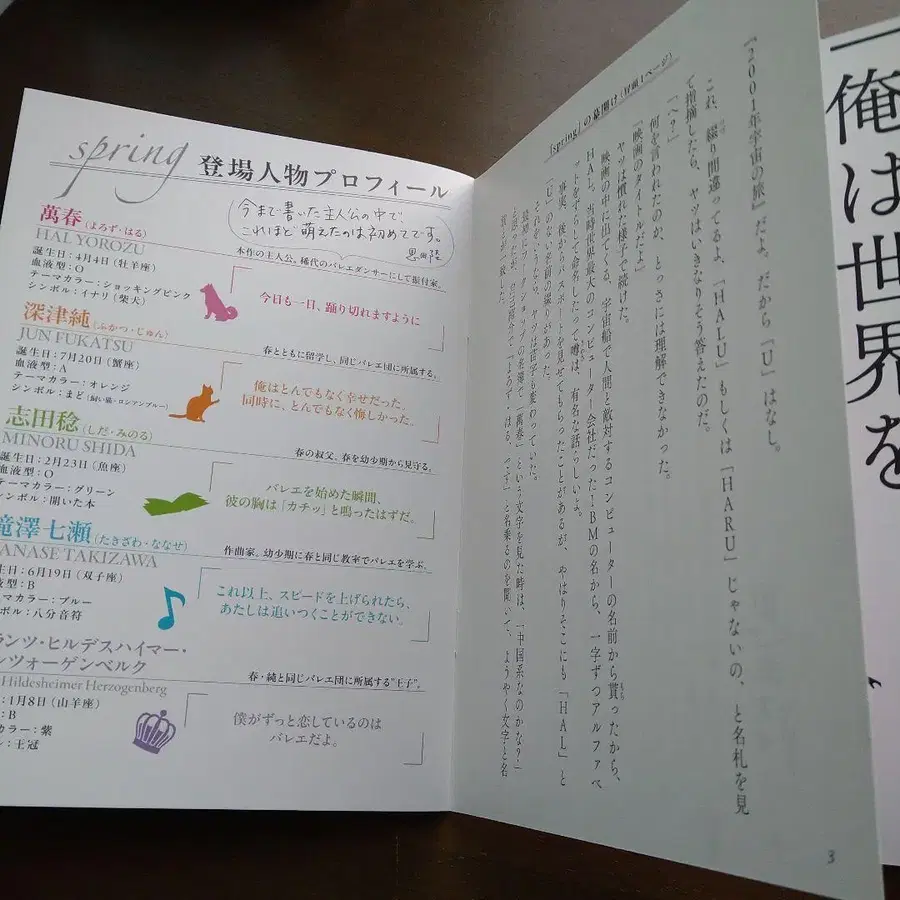 spring 登場人物プロフィール
今まで書いた主人公の中で、
これほど萌えたのは初めてです。
恩田陸
萬春（よろず・はる）
HAL YOROZU
本作の主人公。稀代のバレエダンサーにして振付家。
誕生日：4月4日（牡羊座）
血液型：O
テーマカラー：ショッキングピンク
シンボル：イナリ（柴犬）
今日も一日、踊り切れますように
深津純（ふかつ・じゅん）
JUN FUKATSU
春とともに留学し、同じバレエ団に所属する。
誕生日：7月20日（蟹座）
血液型：A
テーマカラー：オレンジ
シンボル：まど（飼い猫・ロシアンブルー）
俺はとんでもなく幸せだった。
同時に、とんでもなく悔しかった。
志田稔（しだ・みのる）
MINORU SHIDA
春の叔父。春を幼少期から見守る。
誕生日：2月23日（魚座）
血液型：O
テーマカラー：グリーン
シンボル：開いた本
バレエを始めた瞬間、
彼の胸は「カチッ」と鳴ったはずだ。
滝澤七瀬（たきざわ・ななせ）
ANASE TAKIZAWA
作曲家。幼少期に春と同じ教室でバレエを学ぶ。
生日：6月19日（双子座）
液型：B
マカラー：ブルー
ボル：八分音符
これ以上、スピードを上げられたら、
あたしは追いつくことができない。
ランツ・ヒルデスハイマー・
ンツォーゲンベルク
Hildesheimer Herzogenberg
春・純と同じバレエ団に所属する“王子”。
：1月8日（山羊座）
：B
カラー：紫
ル：王冠
僕がずっと恋しているのは
バレエだよ。
『spring』の幕開け（冒頭1ページ）
『2001年宇宙の旅』だよ。だから「U」はなし。
これ、綴り間違ってるよ、「HALU」もしくは「HARU」じゃないの、と名札を見
て指摘したら、ヤツはいきなりそう答えたのだ。
「へ？」
何を言われたのか、とっさには理解できなかった。
「映画のタイトルだよ」
ヤツは慣れた様子で続けた。
映画の中に出てくる、宇宙船で人間と敵対するコンピューターの名前から貰ったから、
HAL。当時世界最大のコンピューター会社だったIBMの名から、一字ずつアルファベ
ットをずらして命名したって噂は、有名な話らしいよ。
事実、後からパスポートを見せてもらったことがあるが、やはりそこにも「HAL」と
「U」のない名前の綴りがあった。
それをいうなら、ヤツは苗字も変わっていた。
最初にワークショップの名簿で「萬春」という文字を見た時は、「中国系なのかな？」
3
「俺は世界を